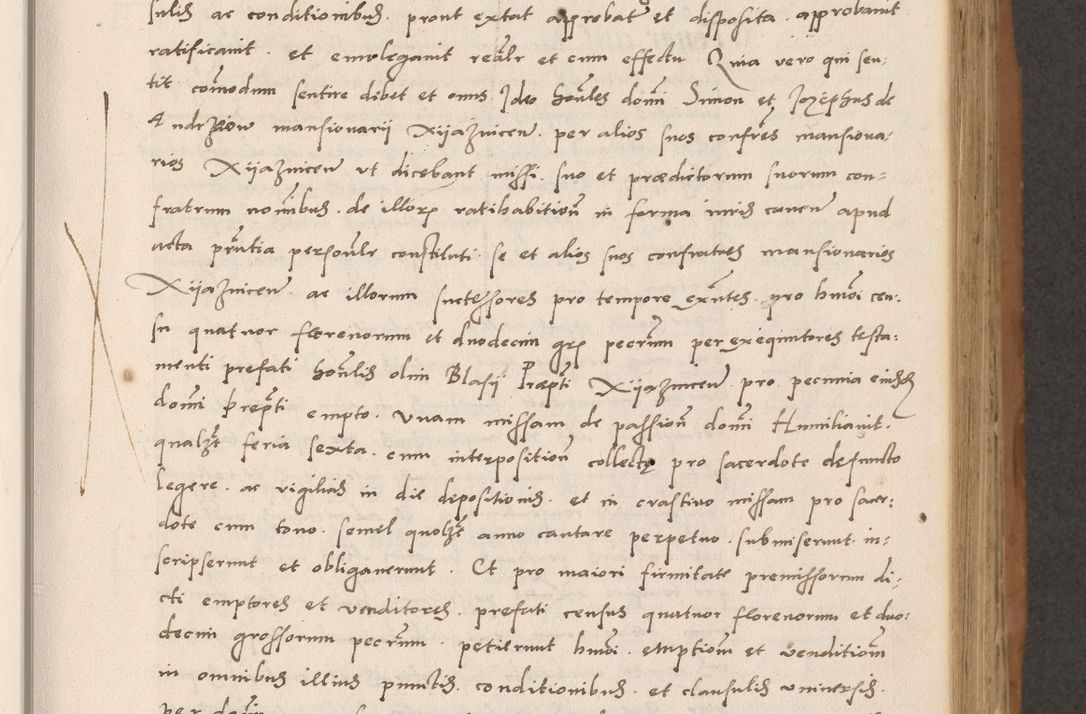 sulis ac conditionibus. prout extat approbat et disposita. approbavit
ratificavit. et emolegavit realr et cum effectu Quia vero qui sen:
tit commodum sentire debet et onus Ideo honles domi Simon et Jozephus de
Andrzeow mansionarii Xijazniceñ. per alios suos confres mansiona:
rios Xijazniceñ ut dicebant missi. suo et prædictorum suorum con:
fratrum nomibus. de illorum ratihabitioñ in forma iuris caveñ apud
acta pñtia personlr constituti se et alios suos confratres mansionarios
Xijazniceñ. ac illorum successores pro tempore exñtes. pro hmoi cen:
su quatuor florenorum et duodecim gr. pecrum per exequutores testa:
menti prefati honlis olim Blasij Præpti Xijazniceñ pro pecunia eiusd
domi prepti empto. unam missam de passioñ domi Humiliavit.
qualzt feria sexta. cum interpositioñ collectæ pro sacerdote defuncto
legere. ac vigilias in die depositionis. et in crastino missam pro sacer:
dote cum tono. semel quolzt anno cantare perpetuo. submiserunt. in:
scripserunt et obligaverunt. Et pro maiori firmitate premissorum di:
cti emptores et venditores. prefati census quatuor florenorum et duo:
decim grossorum pecrum. petierunt hmoi. emptiom et venditiom
in omnibus illius punctis. conditionibus. et clausulis universis.